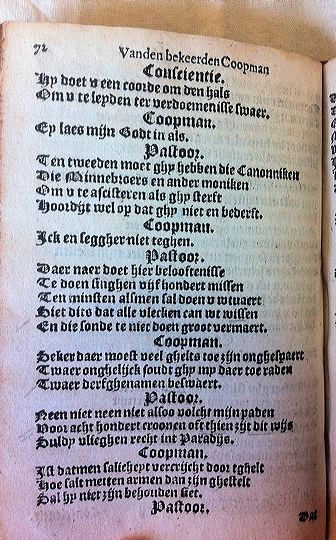 72
Vanden bekeerden Coopman
Conscientie.
Hy doet v een coorde om den hals
Om v te leyden ter verdoemenisse swaer.
Coopman.
Ey laes mijn Godt in als.
Pastoor.
Ten tweeden moet ghy hebben die Canonniken
Die Minnebroers en ander moniken
Om v te assisteren als ghy sterft
Hoordyt wel op dat ghy niet en bederft.
Coopman.
Ick en seggher niet teghen.
Pastoor.
Daer naer doet hier beloostenisse
Te doen singhen vijf hondert missen
Ten minsten alsmen sal doen v wtuaert
Siet dits dat alle vlecken can wt wissen
En die sonde te niet doen groot vermaert.
Coopman.
Seker daer moest veel ghelts toe zijn onghespaert
Twaer onghelijck soudt ghy my daer toe raden
Twaer derfghenamen beswaert.
Pastoor.
Neen niet neen niet alsoo volcht mijn paden
Voor acht hondert croonen oft thien zyt dit wijs
Suldy vlieghen recht int Paradijs.
Coopman.
Ist datmen salicheyt vercrijcht door tghelt
Hoe salt metten armen dan zijn ghestelt
Sal hy niet zijn behouden siet.
Pastoor.
Dat